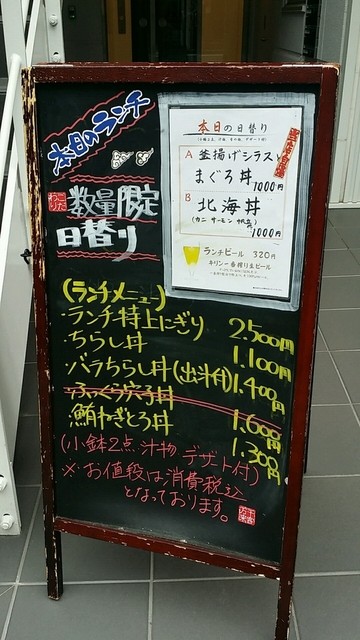 本日のランチ
数量限定
日替り
本日の日替り
A 釜揚げシラス
まぐろ丼
1000円
B 北海丼
(カニ サーモン 帆立)
1000円
ランチビール 320円
キリン一番搾り生ビール
(ランチメニュー)
・ランチ特上にぎり 2,500円
・ちらし丼 1,100円
・バラちらし丼(出汁付) 1,400円
・ふっくら穴子丼 1,600円
・鮪ねぎとろ丼 1,300円
(小鉢2点 汁物 デザート付)
※お値段は消費税込
となっております。